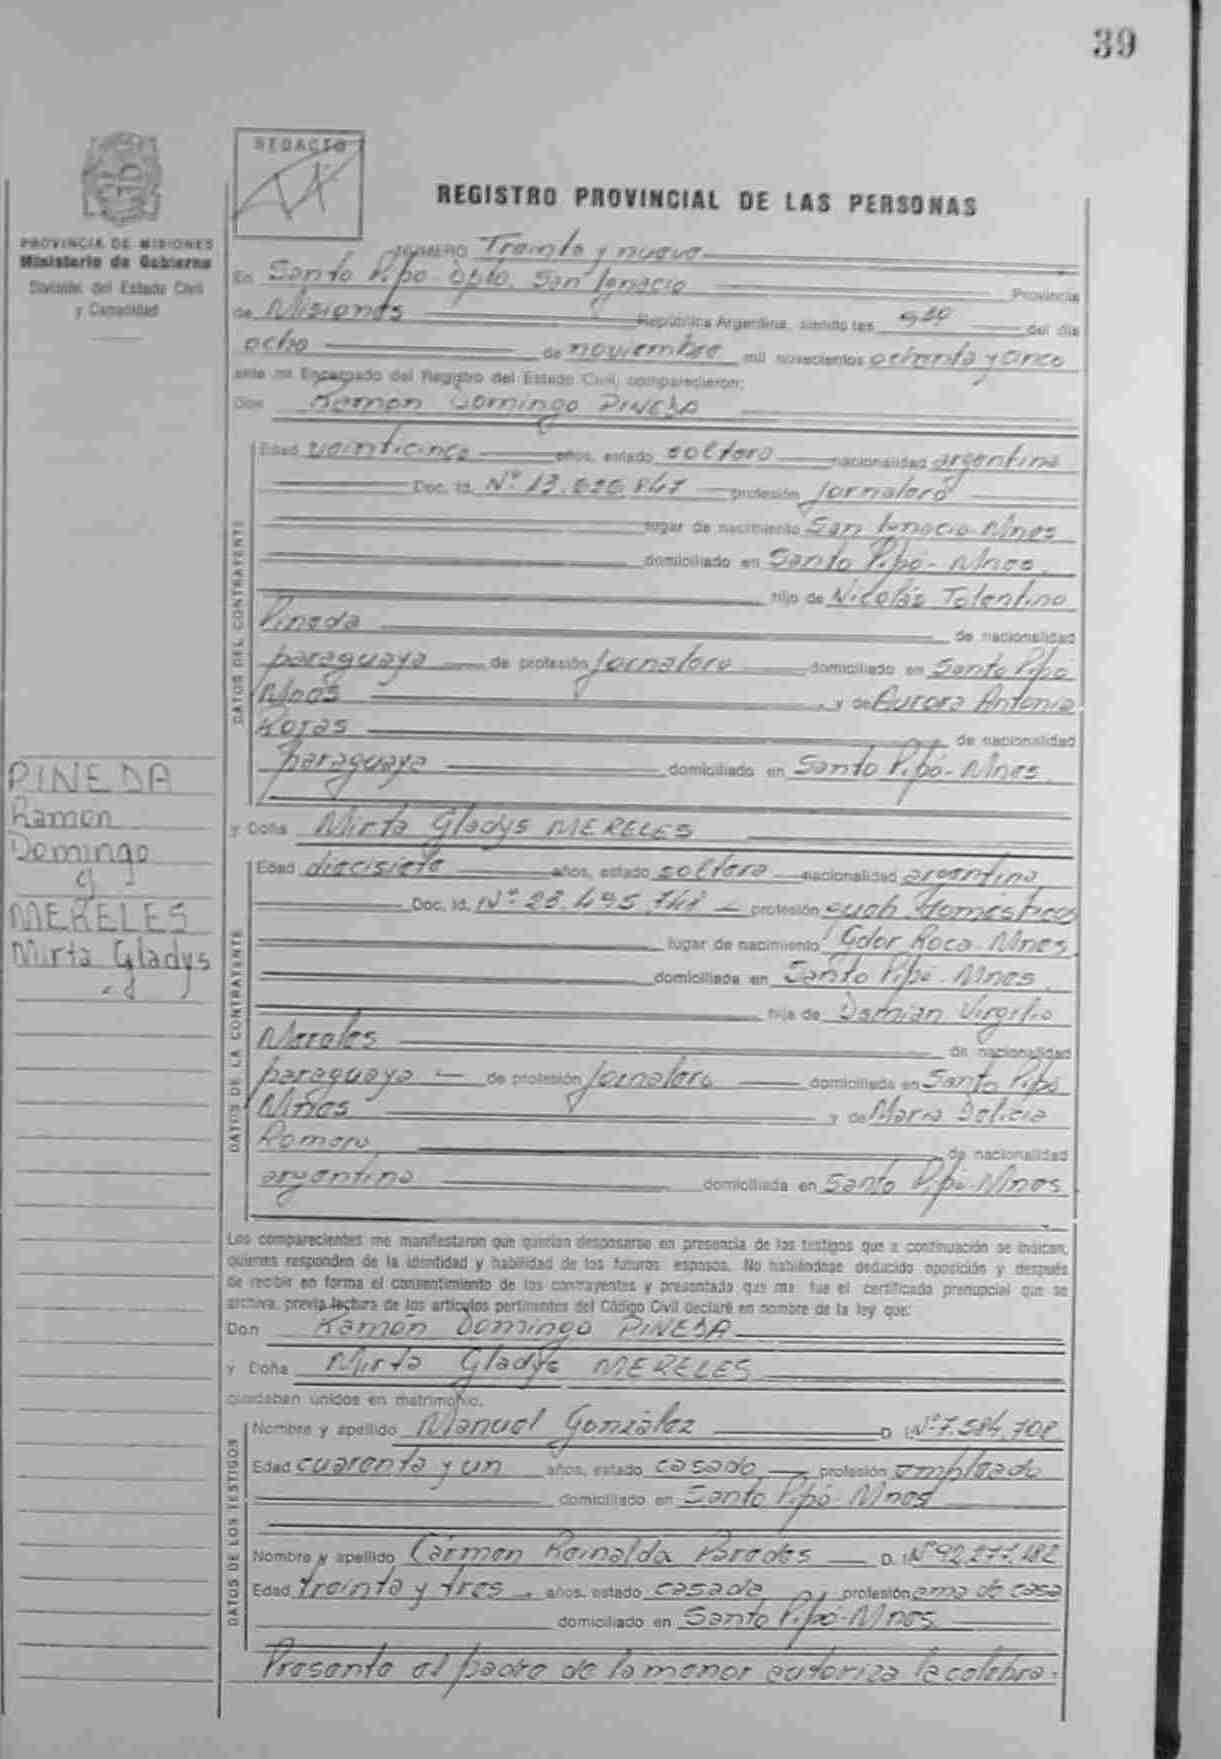 39
REDACTO
REGISTRO PROVINCIAL DE LAS PERSONAS
PROVINCIA DE MISIONES
Ministerio de Gobierno
División del Estado Civil
y Capacidad
NUMERO Treinta y nueve
En Santo Pipó Dpto. San Ignacio Provincia
de Misiones República Argentina, siendo las del día
ocho de noviembre mil novecientos ochenta y cinco
ante mi Encargado del Registro del Estado Civil, comparecieron:
Don Ramón Domingo PINEDA
DATOS DEL CONTRAYENTE
Edad veinticinco años, estado soltero nacionalidad argentina
Doc. Id. Nº 13.  .847 profesión jornalero
lugar de nacimiento San Ignacio Mnes
domiciliado en Santo Pipó - Mnes.
hijo de Nicolás Tolentino
Pineda de nacionalidad
paraguaya de profesión jornalero domiciliado en Santo Pipó
Mnes y de Aurora Antonia
Rojas de nacionalidad
paraguaya domiciliado en Santo Pipó - Mnes.
PINEDA
Ramon
Domingo
y
MERELES
Mirta Gladys
y Doña Mirta Gladys MERELES
DATOS DE LA CONTRAYENTE
Edad diecisiete años, estado soltera nacionalidad argentina
Doc. Id. Nº 23.495.748 profesión queh. domésticos
lugar de nacimiento Gdor Roca Mnes
domiciliada en Santo Pipó - Mnes.
hija de Damián Virgilio
Mereles de nacionalidad
paraguaya de profesión jornalero domiciliada en Santo Pipó
Mnes y de María Delicia
Romero de nacionalidad
argentina domiciliada en Santo Pipó Mnes.
Los comparecientes me manifestaron que querían desposarse en presencia de los testigos que a continuación se indican,
quienes responden de la identidad y habilidad de los futuros esposos. No habiéndose deducido oposición y después
de recibir en forma el consentimiento de los contrayentes y presentado que me fue el certificado prenupcial que se
archiva, previa lectura de los artículos pertinentes del Código Civil declaré en nombre de la ley que:
Don Ramón Domingo PINEDA
y Doña Mirta Gladys MERELES
quedaban unidos en matrimonio.
DATOS DE LOS TESTIGOS
Nombre y apellido Manuel González D. I. Nº 7.584.708
Edad cuarenta y un años, estado casado profesión empleado
domiciliado en Santo Pipó Mnes
Nombre y apellido Cármen Reinalda Paredes D. I. Nº 92.277.182
Edad treinta y tres años, estado casada profesión ama de casa
domiciliado en Santo Pipó - Mnes.
Presente el padre de la menor autoriza la celebra-